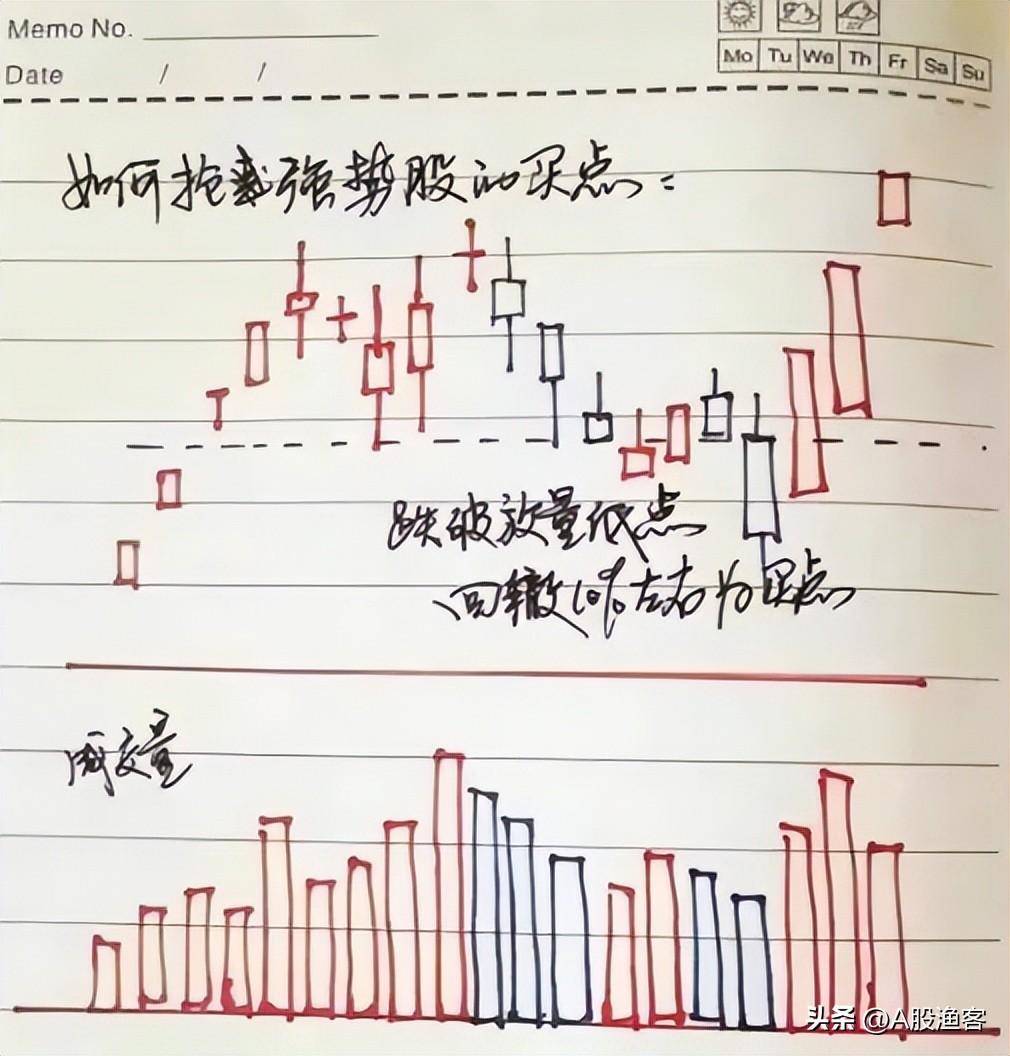 Memo No.
Date / /
Mo Tu We Th Fr Sa Su
如何抢截强势股的买点:
跌破放量低点
回辙10%左右为买点
成交量
头条 @A股渔客